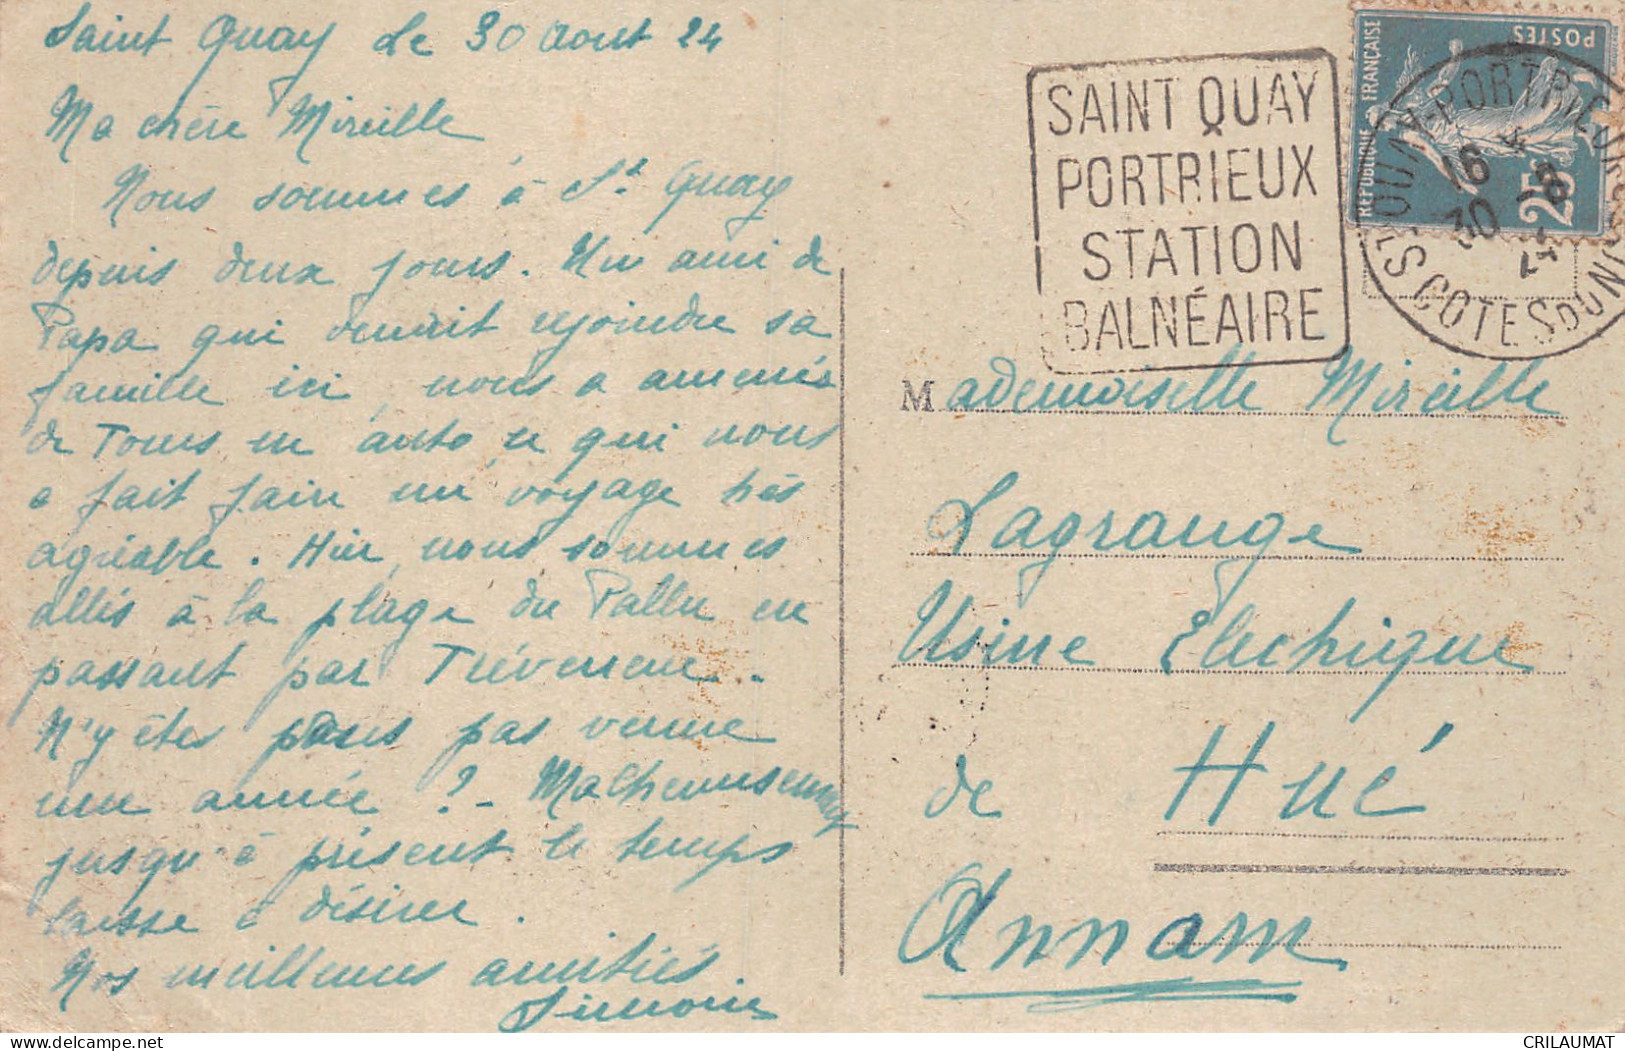 Saint Quay le 30 Aout 24
Ma chère Mireille
Nous sommes à St Quay
depuis deux jours. Un ami de
Papa qui venait rejoindre sa
famille ici, nous a amenés
de Tours en auto ce qui nous
a fait faire un voyage très
agréable. Hier, nous sommes
allés à la plage du Pallu en
passant par Tréveneuc.
N'y êtes vous pas venue
une année ? - Malheureusement
jusqu'à présent le temps
laisse à désirer.
Nos meilleures amitiés.
Simone
SAINT QUAY
PORTRIEUX
STATION
BALNÉAIRE
POSTES
REPUBLIQUE FRANÇAISE
25c
ST QUAY-PORTRIEUX
16
30 -8
24
LES COTES DU NORD
Mademoiselle Mireille
Lagrange
Usine Electrique
de Hué
Annam
CRILAUMAT